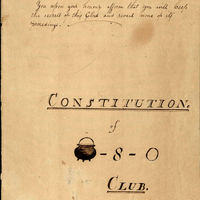 You upon your honor affirm that you will keep
the secrets of this Club and reveal none of its
proceedings.
CONSTITUTION.
of
-8-O
CLUB.